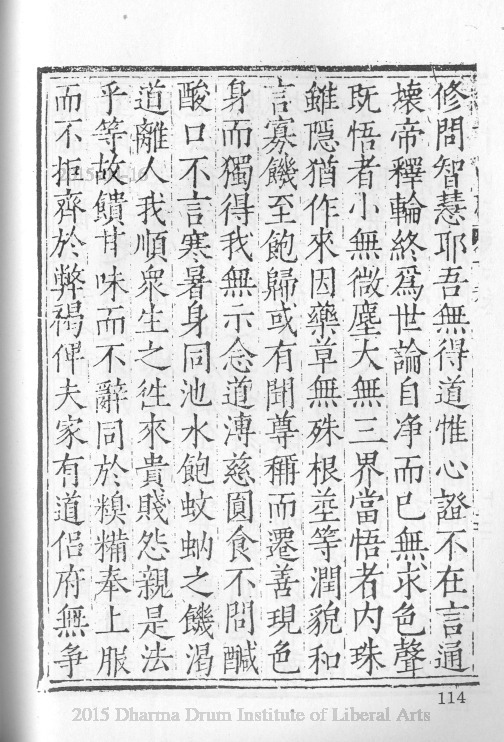 修問智慧耶吾無得道惟心證不在言通
壞帝釋輪終爲世論自净而已無求色聲
既悟者小無微塵大無三界當悟者内珠
雖隱猶作來因藥草無殊根莖等潤貌和
言寡饑至飽歸或有聞尊稱而遷善現色
身而獨得我無示念道溥慈圓食不問醎
酸口不言寒暑身同池水飽蚊蚋之饑渴
道離人我順衆生之徃來貴賤怨親是法
乎等故饋甘味而不辭同於糗糒奉上服
而不拒齊於弊褐俾夫家有道侶府無争
114
2015 Dharma Drum Institute of Liberal Arts